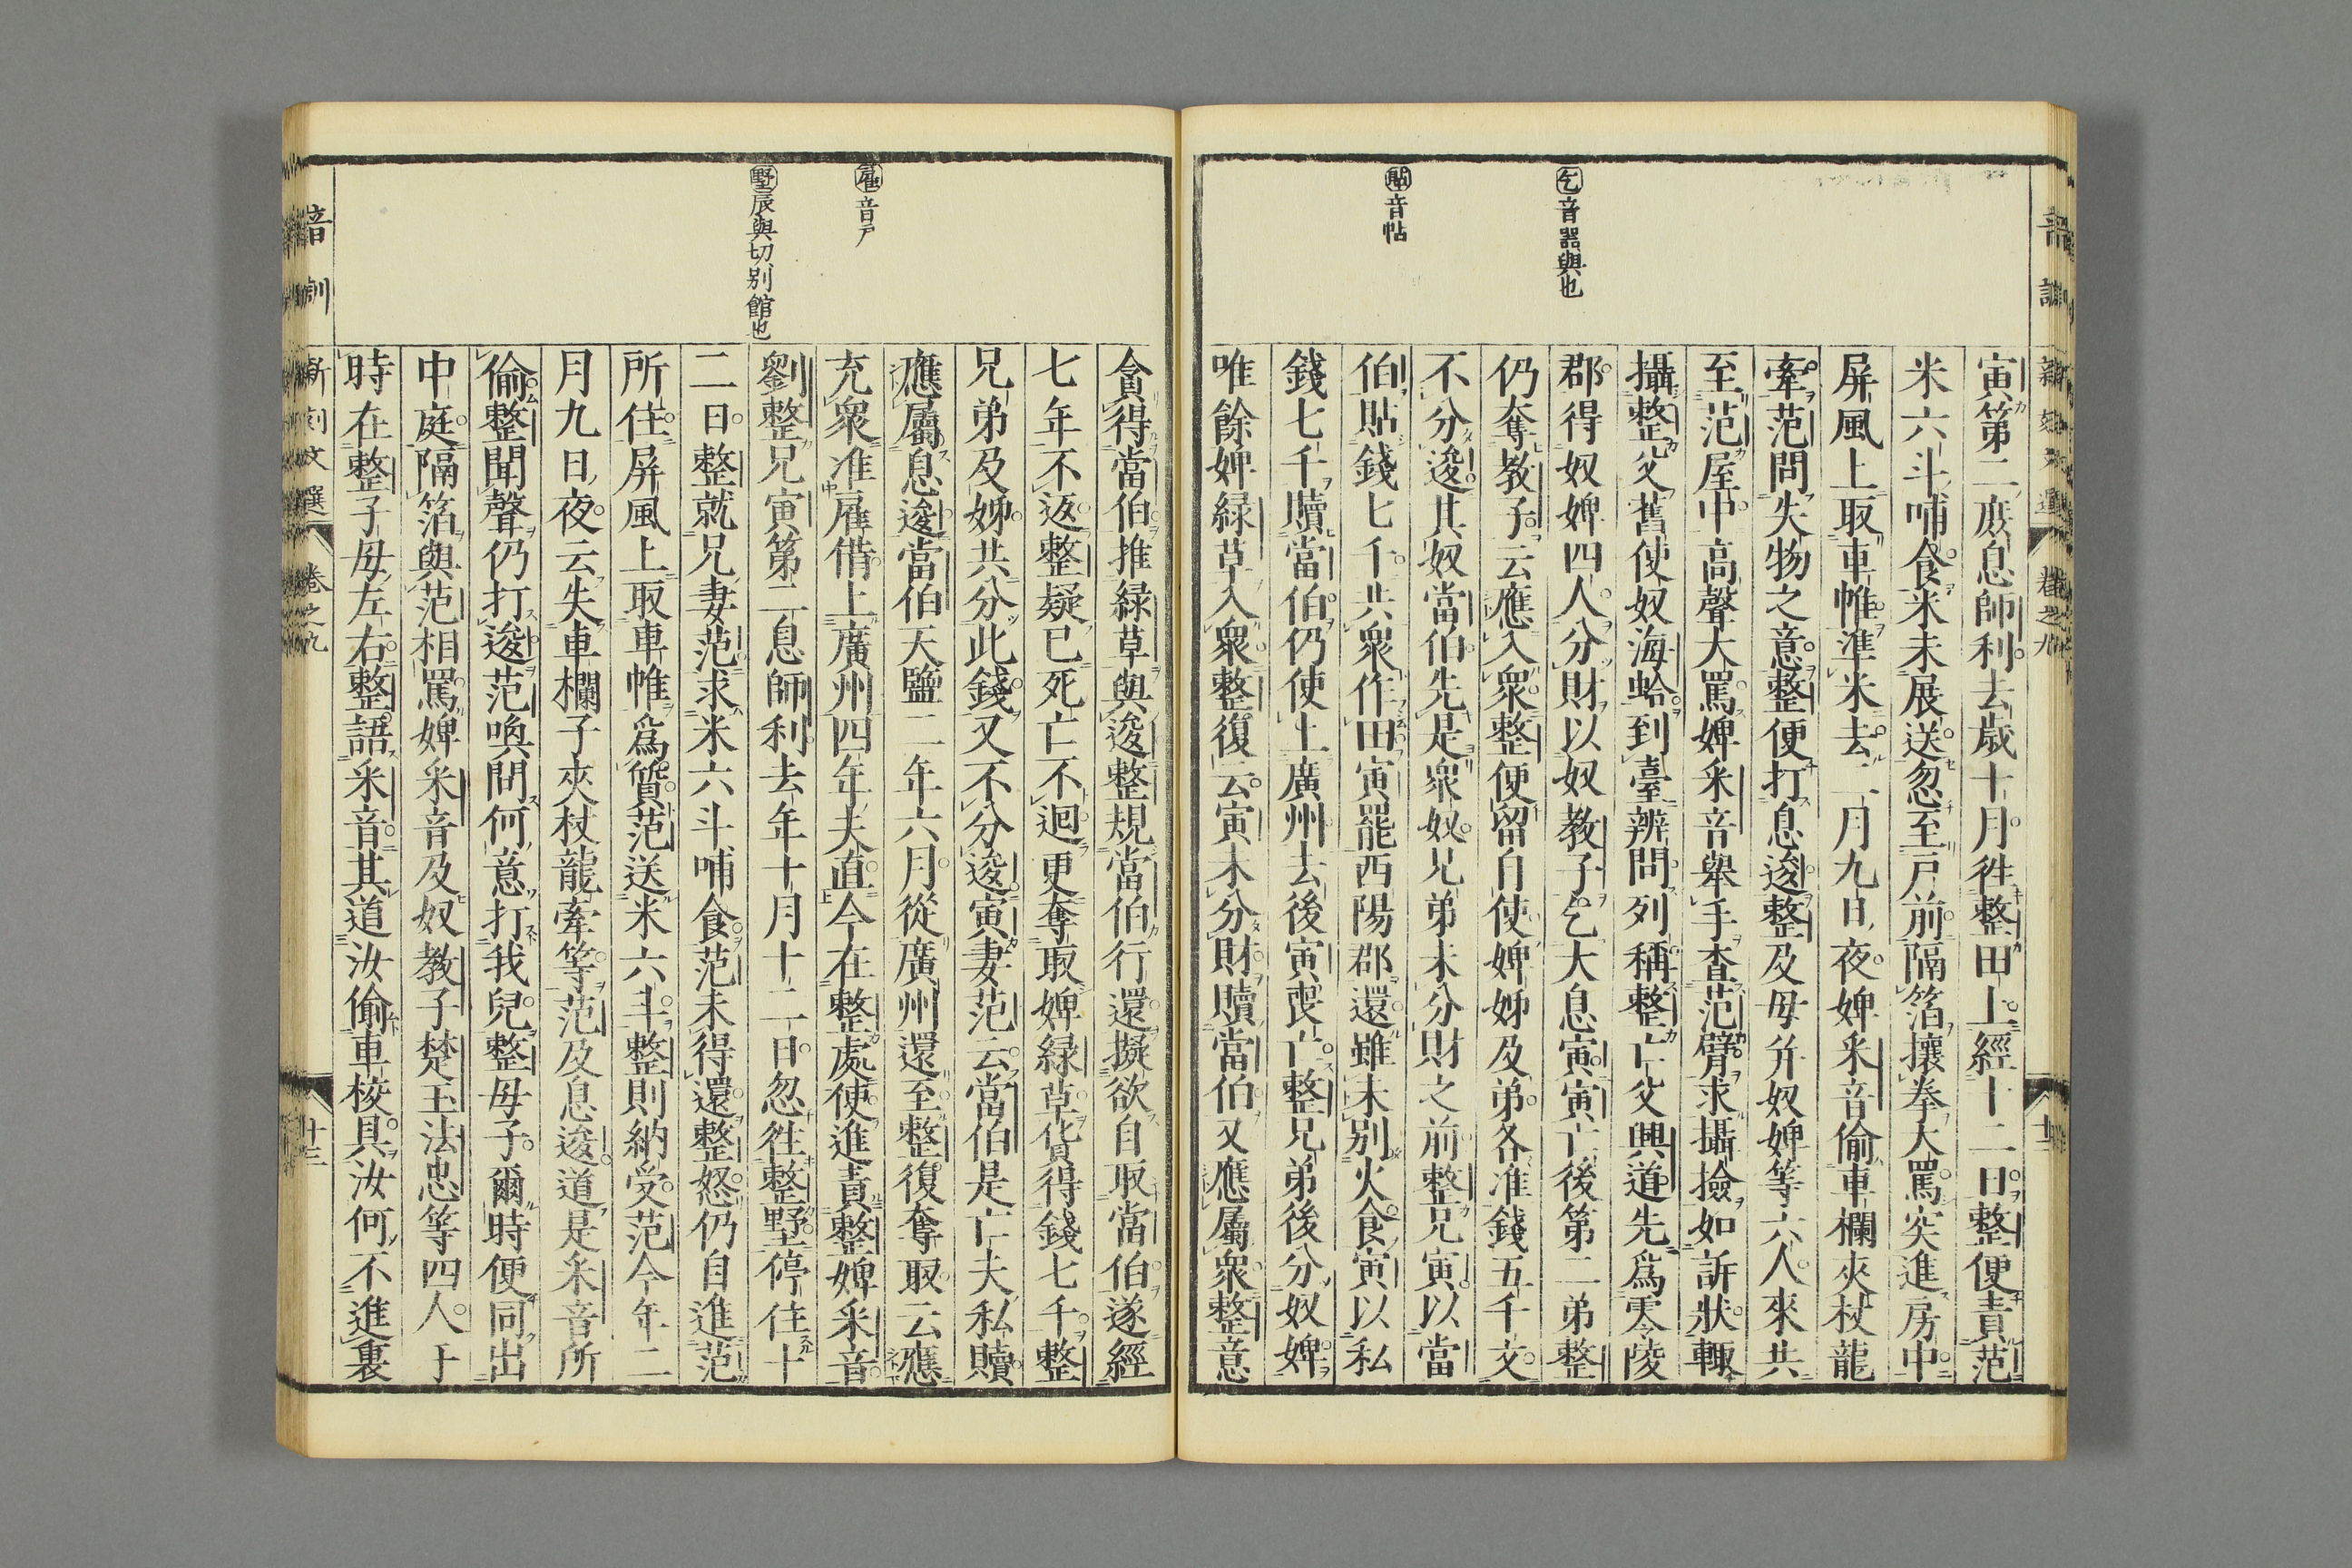 音訓
新刻文選 卷之九
乞音器與也
貼音帖
寅第二庶息師利去歳十月徃整田上經十二日整便責范
米六斗哺食米未展送忽至戸前隔箔攘拳大罵突進房中
屏風上取車帷準米去二月九日夜婢采音偷車欄夾杖龍
牽范問失物之意整便打息逡整及母并奴婢等六人來共
至范屋中高聲大罵婢采音舉手査范臂求攝撿如訴狀輙
攝整父舊使奴海蛤到臺辨問列稱整亡父興道先爲零陵
郡得奴婢四人分財以奴教子乞大息寅寅亡後第二弟整
仍奪教子云應入衆整便留自使婢姊及弟各准錢五千文
不分逡其奴當伯先是衆奴兄弟未分財之前整兄寅以當
伯貼錢七千共衆作田寅罷西陽郡還雖未別火食寅以私
錢七千贖當伯仍使上廣州去後寅喪亡整兄弟後分奴婢
唯餘婢緑草入衆整復云寅未分財贖當伯又應屬衆整意
雇音戸
野辰與切別館也
貪得當伯推緑草與逡整規當伯行還擬欲自取當伯遂經
七年不返整疑已死亡不迴更奪取婢緑草貨得錢七千整
兄弟及姊共分此錢又不分逡寅妻范云當伯是亡夫私贖
應屬息逡當伯天鹽二年六月從廣州還至整復奪取云應
充衆准雇借上廣州四年夫直今在整處使進責整婢采音
劉整兄寅第二息師利去年十月十二日忽徃整野停住十
二日整就兄妻范求米六斗哺食范未得還整怒仍自進范
所住屏風上取車帷爲質范送米六斗整則納受范今年二
月九日夜云失車欄子夾杖龍牽等范及息逡道是采音所
偷整聞聲仍打逡范喚問何意打我兒整母子爾時便同出
中庭隔箔與范相罵婢采音及奴教子楚玉法忠等四人于
時在整子母左右整語采音其道汝偷車校具汝何不進裏
音訓
新刻文選 卷之九 十三